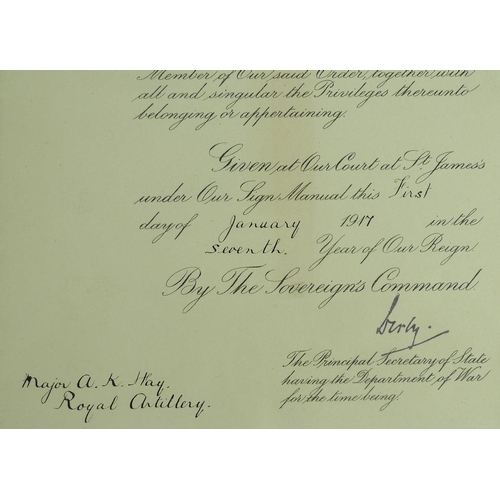 Member of Our said Order, together with
all and singular the Privileges thereunto
belonging or appertaining.
Given at Our Court at St James's
under Our Sign Manual this First
day of January 1917 in the
Seventh. Year of Our Reign
By The Sovereign's Command
Derby.
The Principal Secretary of State
having the Department of War
for the time being.
Major A. K. Hay.
Royal Artillery.